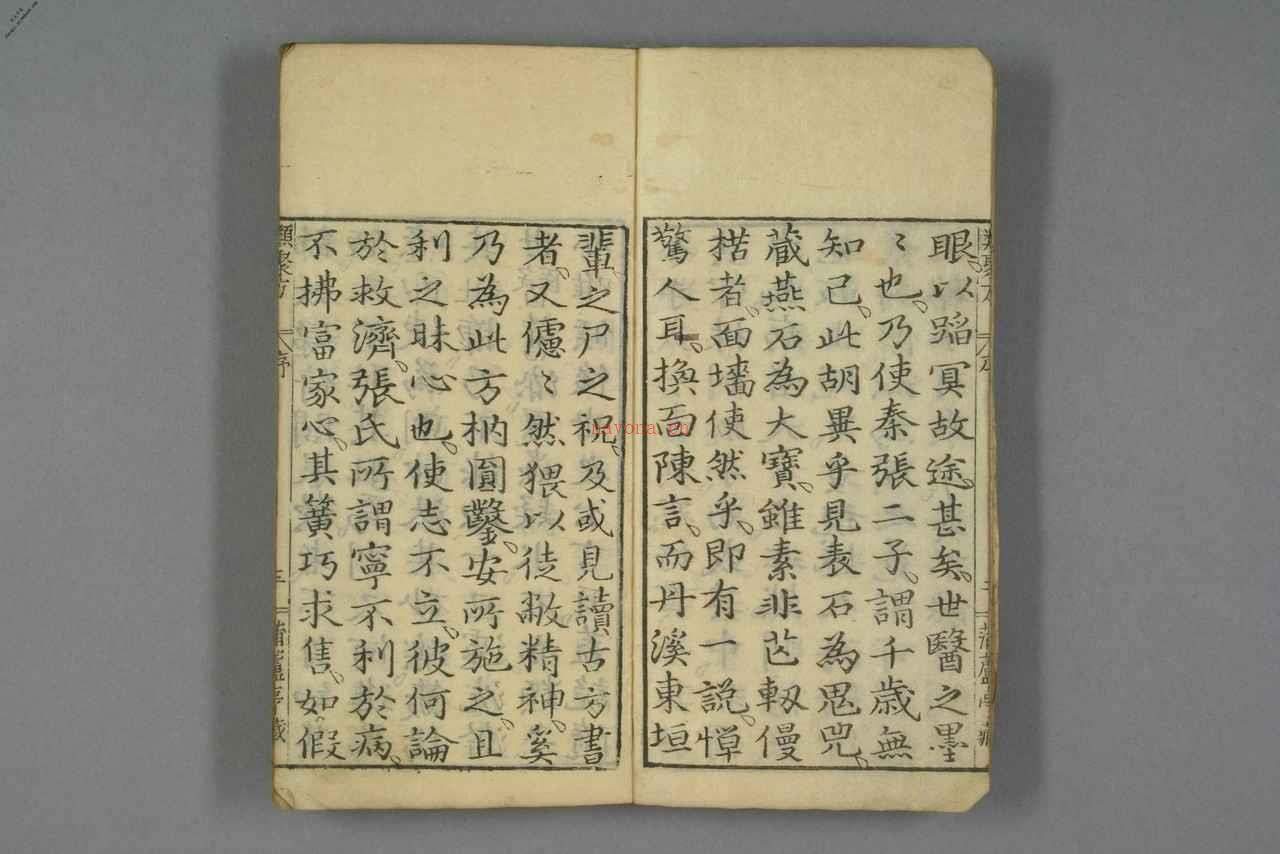 眼以蹈冥故途甚矣世醫之墨
〻也乃使秦張二子謂千歳無
知己此胡異乎見表石為思兕
蔵燕石為大寶雖素非芒軔僈
楛者面墻使然乎即有一說憚
驚人耳換面陳言而丹溪東垣
輩之尸之祝及或見讀古方書
者又儢〻然猥以徒敝精神奚
乃為此方枘圓鑿安所施之且
利之昧心也使志不立彼何論
於救濟張氏所謂寧不利於病
不拂富家心其簧巧求售如假
類聚方 序 三 蒲蘆亭藏
nayona.cn